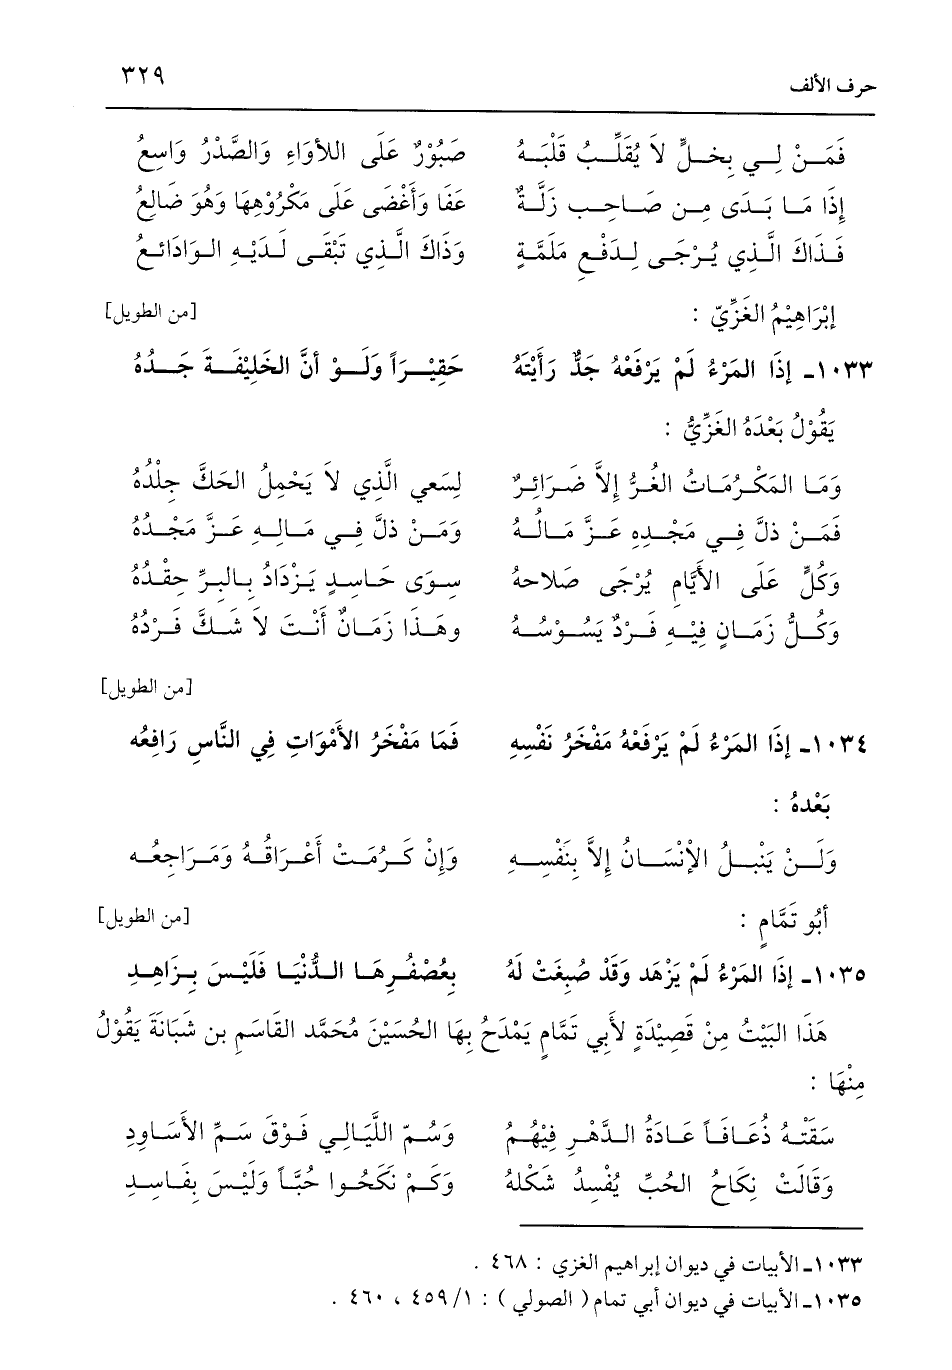 حرف الألف ٣٢٩
فَمَنْ لِي بِخلٍّ لاَ يُقَلِّبُ قَلْبَهُ صَبُوْرٌ عَلَى اللأوَاءِ وَالصَّدْرُ وَاسِعُ
إِذَا مَا بَدَى مِن صَاحِبٍ زَلَّةٌ عَفَا وَأَغْضَى عَلَى مَكْرُوْهِهَا وَهُوَ ضَالِعُ
فَذَاكَ الَّذِي يُرْجَى لِدَفْعِ مَلَمَّةٍ وَذَاكَ الَّذِي تَبْقَى لَدَيْهِ الوَدَائعُ
إِبْرَاهِيْمُ الغَزِّيّ : [من الطويل]
١٠٣٣ـ إِذَا المَرْءُ لَمْ يَرْفَعْهُ جَدٌّ رَأَيْتَهُ حَقِيْرَاً وَلَوْ أَنَّ الخَلِيْفَةَ جَدُّهُ
يَقُوْلُ بَعْدَهُ الغَزِّيُّ :
وَمَا المَكْرُمَاتُ الغُرُّ إِلاَّ ضَرَائِرٌ لِسَعي الَّذِي لاَ يَحْمِلُ الحَكَّ جِلْدُهُ
فَمَنْ ذلَّ فِي مَجْدِهِ عَزَّ مَالُهُ وَمَنْ ذلَّ فِي مَالِهِ عَزَّ مَجْدُهُ
وَكُلٌّ عَلَى الأَيَّامِ يُرْجَى صَلاَحهُ سِوَى حَاسِدٍ يَزْدَادُ بِالبِرِّ حِقْدُهُ
وَكُلُّ زَمَانٍ فِيْهِ فَرْدٌ يَسُوْسُهُ وهَذَا زَمَانٌ أَنْتَ لاَ شَكَّ فَرْدُهُ
[من الطويل]
١٠٣٤ـ إِذَا المَرْءُ لَمْ يَرْفَعْهُ مَفْخَرُ نَفْسِهِ فَمَا مَفْخَرُ الأَمْوَاتِ فِي النَّاسِ رَافِعُه
بَعْدهُ :
وَلَنْ يَنْبلُ الإِنْسَانُ إِلاَّ بِنَفْسِهِ وَإِنْ كَرُمَتْ أَعْرَاقُهُ وَمَرَاجِعُه
أَبُو تَمَّامٍ : [من الطويل]
١٠٣٥ـ إِذَا المَرْءُ لَمْ يَزْهَد وَقَدْ صُبِغَتْ لَهُ بِعُصْفُرِهَا الدُّنْيَا فَلَيْسَ بِزَاهِدِ
هَذَا البَيْتُ مِنْ قَصِيْدَةٍ لأَبِي تَمَّامٍ يَمْدَحُ بِهَا الحُسَيْنَ مُحَمَّد القَاسَمِ بن شَبَانَةَ يَقُوْلُ
مِنْهَا :
سَقَتْهُ ذُعَافَاً عَادَةُ الدَّهْرِ فِيْهُمُ وَسُمّ اللَّيَالِي فَوْقَ سَمِّ الأَسَاوِدِ
وَقَالَتْ نِكَاحُ الحُبِّ يُفْسِدُ شَكْلهُ وَكَمْ نَكَحُوا حُبَّاً وَلَيْسَ بِفَاسِدِ
١٠٣٣ـ الأبيات في ديوان إبراهيم الغزي : ٤٦٨ .
١٠٣٥ـ الأبيات في ديوان أبي تمام ( الصولي ) : ١/ ٤٥٩ ، ٤٦٠ .